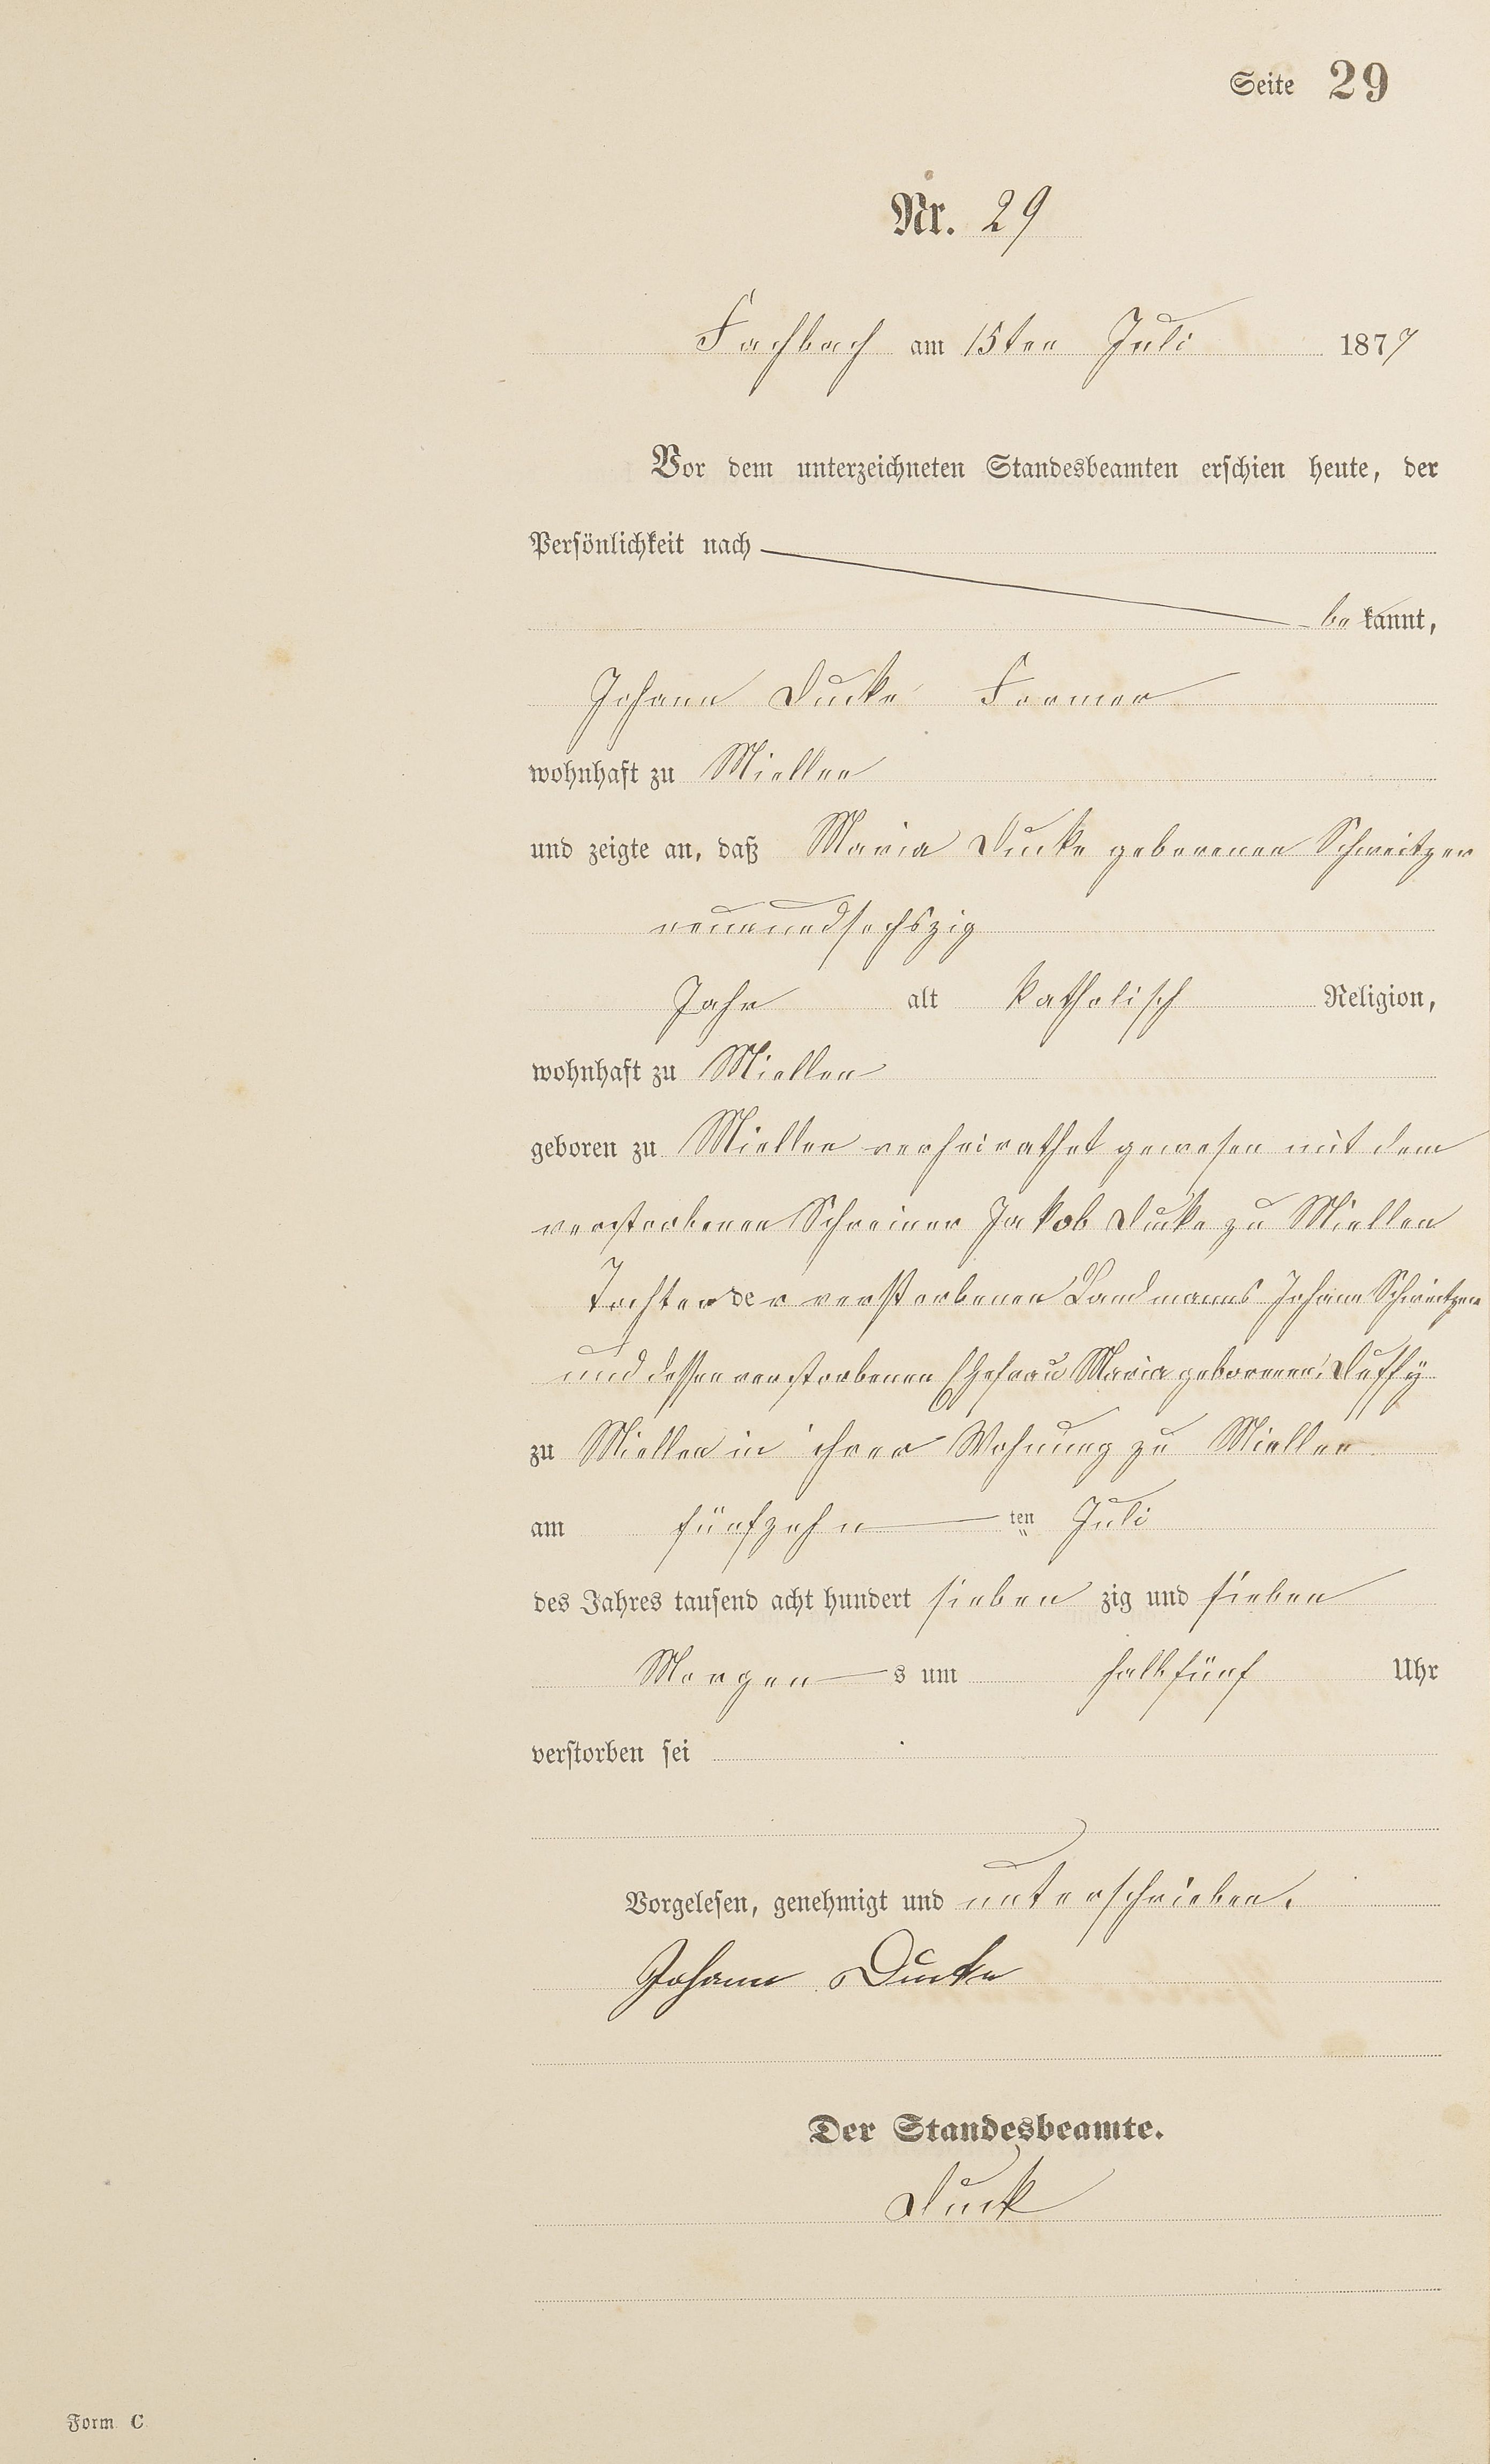 Seite 29
Nr. 29
Fachbach am 15ten Juli 1877
Vor dem unterzeichneten Standesbeamten erschien heute, der
Persönlichkeit nach
be kannt,
Johann Ducke Former
wohnhaft zu Miellen
und zeigte an, daß Maria Ducke geborenen Schweitzer
neunundsechszig
Jahr alt katholisch Religion,
wohnhaft zu Miellen
geboren zu Miellen verheirathet gewesen mit dem
verstorbenen Schreiner Jakob Ducke zu Miellen
Tochter der verstorbenen Landmanns Johann Schweitzer
und dessen verstorbenen Ehefrau Maria geborenen Duffy
zu Miellen in ihrer Wohnung zu Miellen
am fünfzehn ten Juli
des Jahres tausend acht hundert sieben zig und sieben
Morgen s um halb fünf Uhr
verstorben sei
Vorgelesen, genehmigt und unterschrieben.
Johann Ducke
Der Standesbeamte.
Duck
Form C